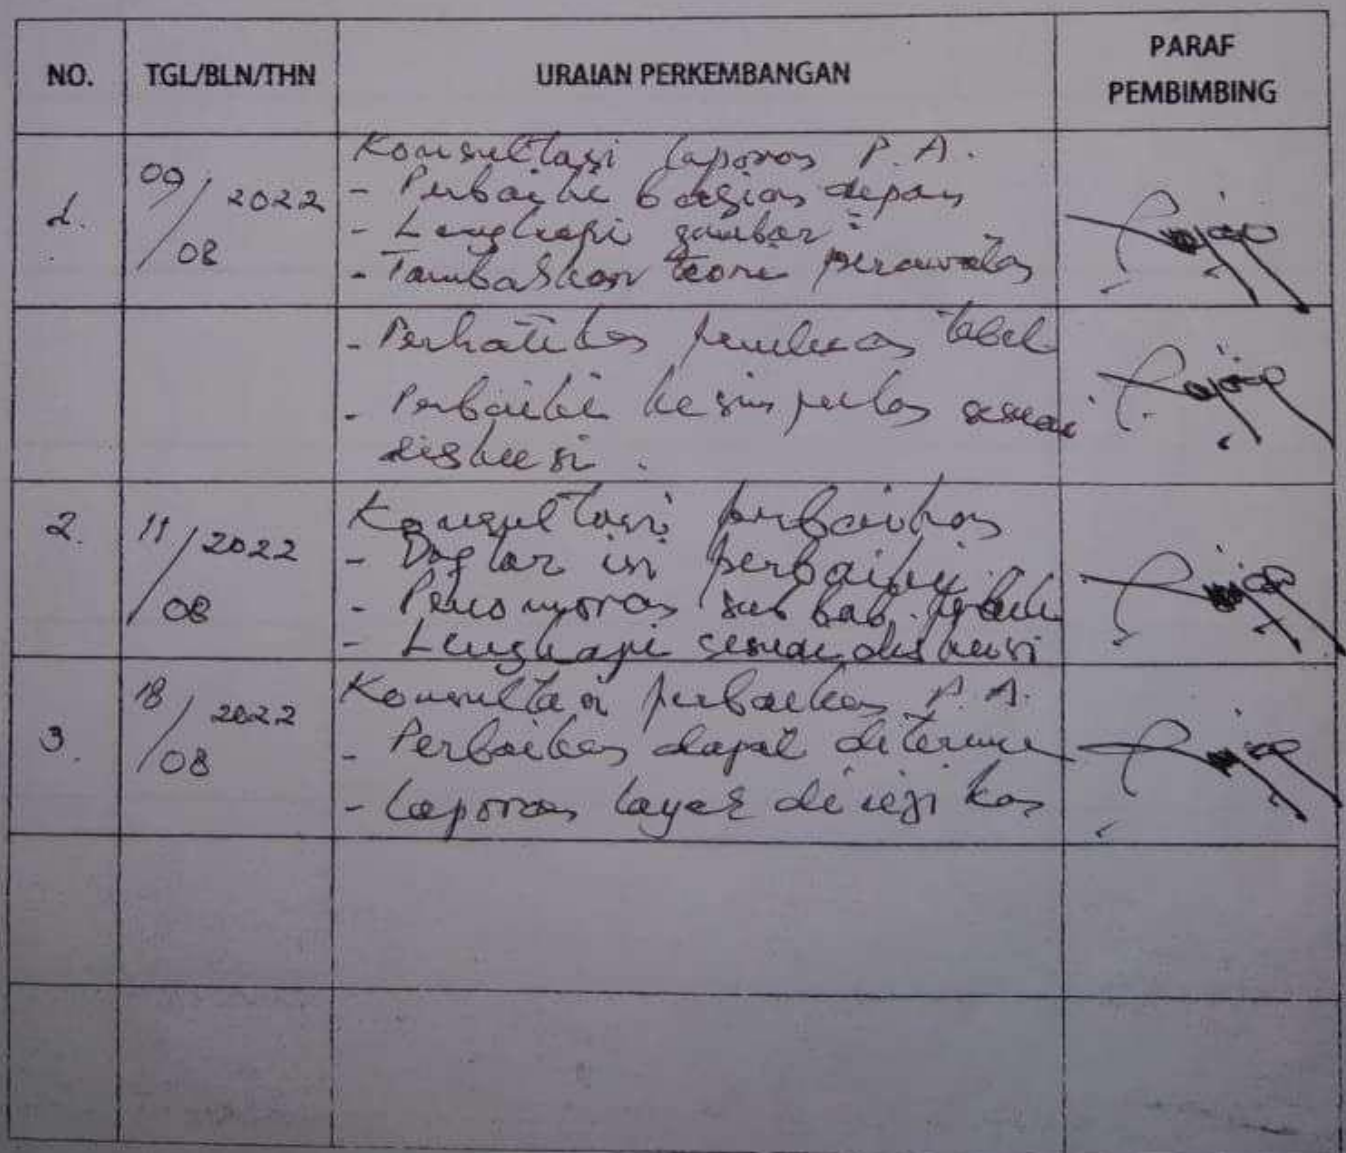 NO.
TGL/BLN/THN
URAIAN PERKEMBANGAN
PARAF
PEMBIMBING
1.
09/08 2022
Konsultasi laporan P.A.
- Perbaiki bagian depan
- Lengkapi gambar
- Tambahkan teori perawatan
- Perhatikan penulisan tabel
- Perbaiki kesimpulan sesuai
diskusi.
2.
11/08 2022
Konsultasi perbaikan
- Daftar isi perbaiki.
- Penomoran sub bab
- Lengkapi sesuai diskusi
3.
18/08 2022
Konsultasi perbaikan P.A.
- Perbaikan dapat diterima
- Laporan layak